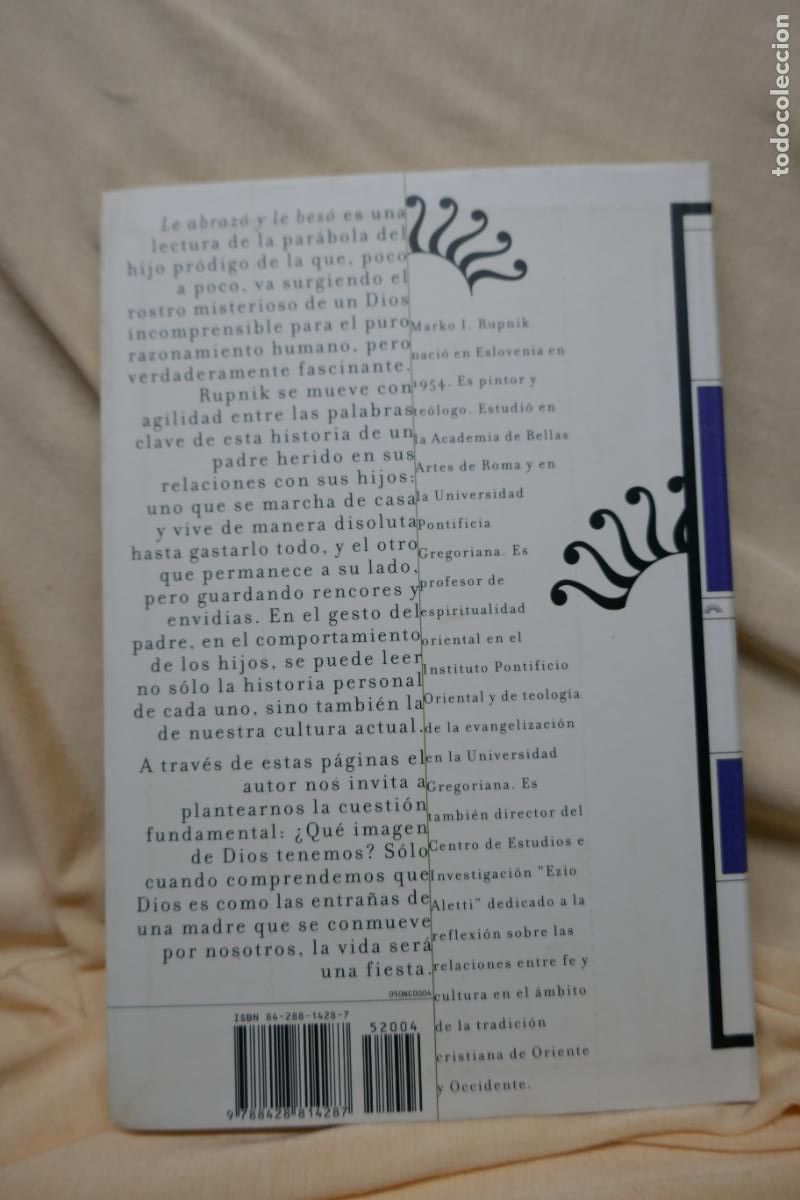 Le abrazó y le besó es una
lectura de la parábola del
hijo pródigo de la que, poco
a poco, va surgiendo el
rostro misterioso de un Dios
incomprensible para el puro
razonamiento humano, pero
verdaderamente fascinante.
Rupnik se mueve con
agilidad entre las palabras
clave de esta historia de un
padre herido en sus
relaciones con sus hijos:
uno que se marcha de casa
y vive de manera disoluta
hasta gastarlo todo, y el otro
que permanece a su lado,
pero guardando rencores y
envidias. En el gesto del
padre, en el comportamiento
de los hijos, se puede leer
no sólo la historia personal
de cada uno, sino también la
de nuestra cultura actual.
A través de estas páginas el
autor nos invita a
plantearnos la cuestión
fundamental: ¿Qué imagen
de Dios tenemos? Sólo
cuando comprendemos que
Dios es como las entrañas de
una madre que se conmueve
por nosotros, la vida será
una fiesta.
050NC0004
ISBN 84-288-1428-7
52004
9 788428 814287
Marko I. Rupnik
nació en Eslovenia en
1954. Es pintor y
teólogo. Estudió en
la Academia de Bellas
Artes de Roma y en
la Universidad
Pontificia
Gregoriana. Es
profesor de
espiritualidad
oriental en el
Instituto Pontificio
Oriental y de teología
de la evangelización
en la Universidad
Gregoriana. Es
también director del
Centro de Estudios e
Investigación "Ezio
Aletti" dedicado a la
reflexión sobre las
relaciones entre fe y
cultura en el ámbito
de la tradición
cristiana de Oriente
y Occidente.
todocoleccion